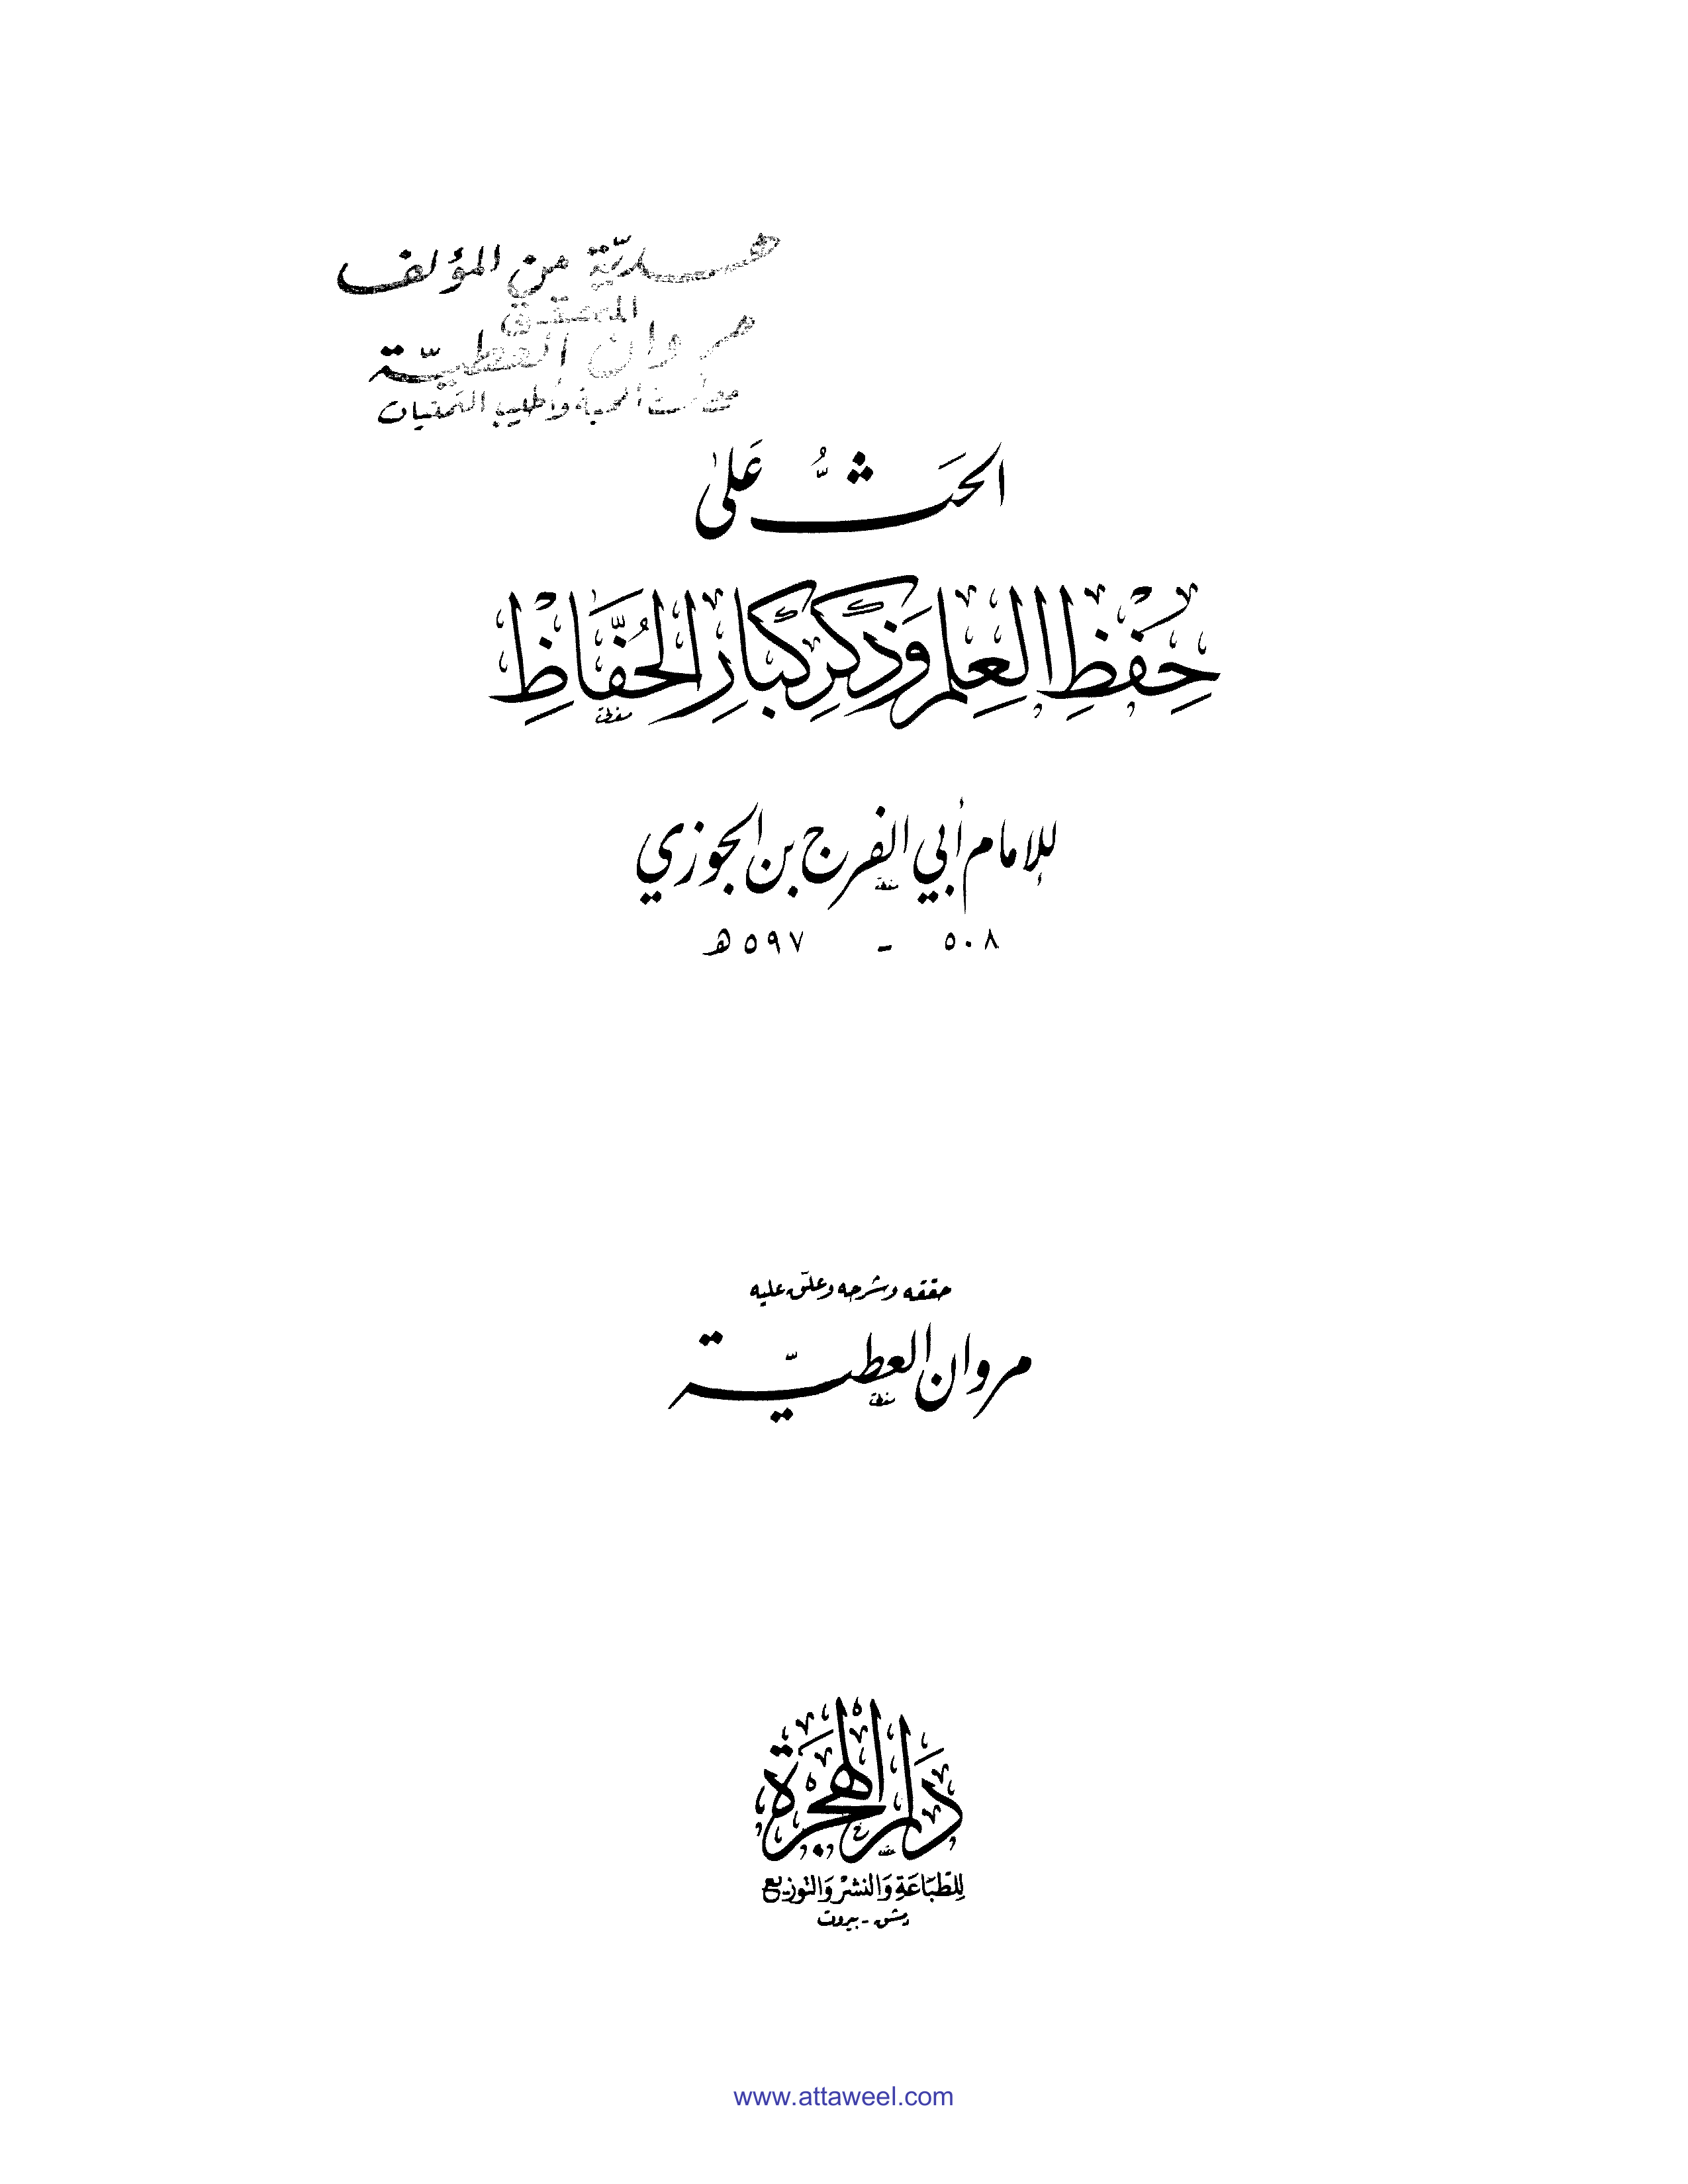 هـديّة من المؤلف
المحقق
مروان العطيّة
مع أسمى المحبة وأطيب التمنيات
الحَثُّ عَلىٰ
حِفْظِ العِلمِ وَذِكْرِ كِبَارِ الحُفَّاظِ
للإمام أبي الفرج بن الجوزي
٥٠٨ - ٥٩٧ هـ
حققه وشرحه وعلّق عليه
مروان العطيّة
دَار الهِجرَة
لِلطّبَاعَةِ وَالنشرْ وَالتوزيع
دمشق - بيروت
www.attaweel.com